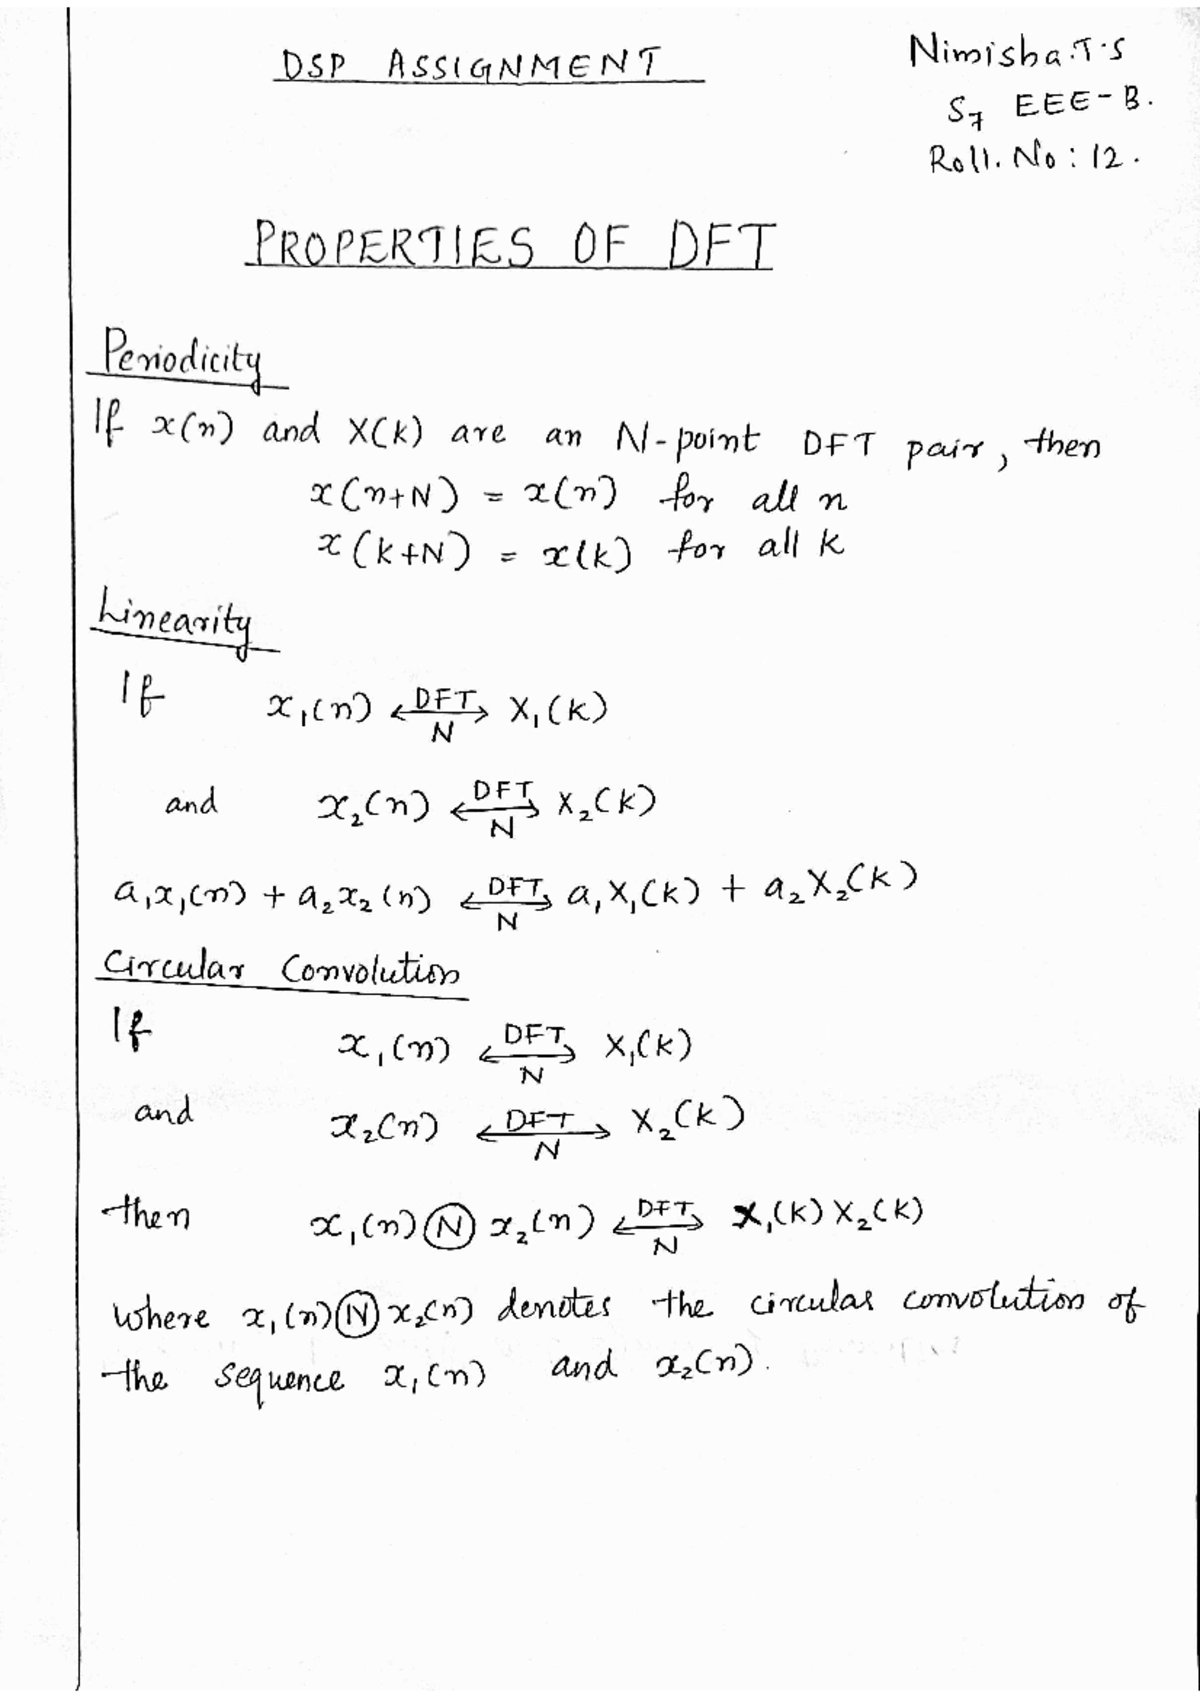 DSP ASSIGNMENT
Nimisha.T.S
S7 EEE-B.
Roll.No: 12.
PROPERTIES OF DFT
Periodicity
If x(n) and X(k) are an N-point DFT pair, then
x(n+N) = x(n) for all n
x(k+N) = x(k) for all k
Linearity
If x₁(n) ←DFT/N→ X₁(k)
and x₂(n) ←DFT/N→ X₂(k)
a₁x₁(n) + a₂x₂(n) ←DFT/N→ a₁X₁(k) + a₂X₂(k)
Circular Convolution
If x₁(n) ←DFT/N→ X₁(k)
and x₂(n) ←DFT/N→ X₂(k)
then x₁(n) Ⓝ x₂(n) ←DFT/N→ X₁(k) X₂(k)
where x₁(n) Ⓝ x₂(n) denotes the circular convolution of
the sequence x₁(n) and x₂(n).